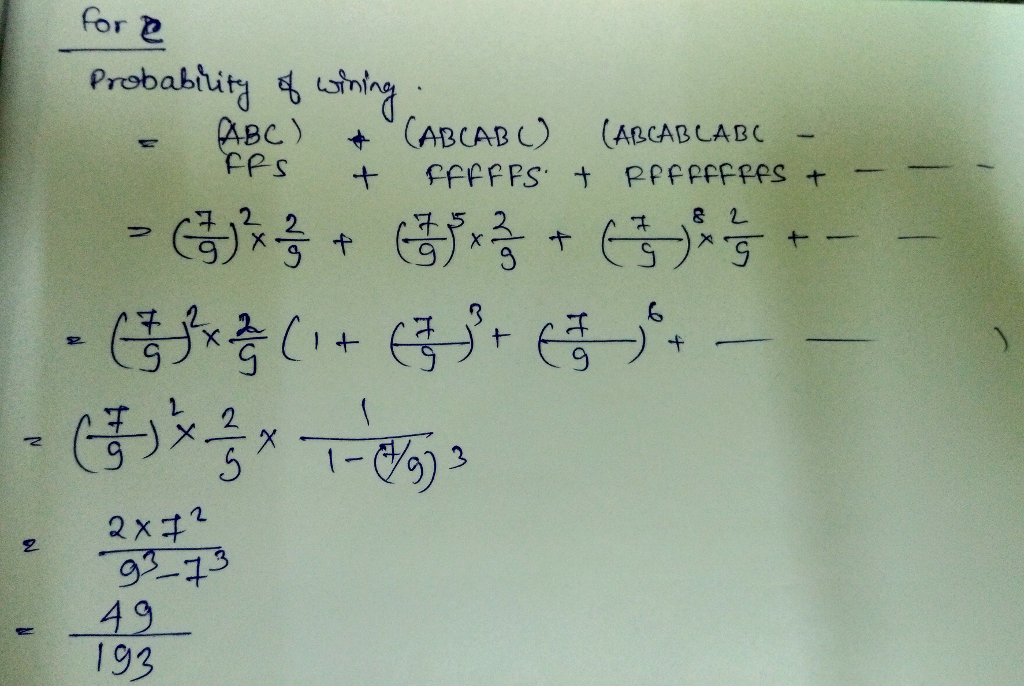 for C
Probability of wining.
= (ABC) + (ABCABC) (ABCABCABC -
FFS + FFFFFS + FFFFFFFFS + - - -
= (7/9)² × 2/9 + (7/9)⁵ × 2/9 + (7/9)⁸ × 2/9 + - -
= (7/9)² × 2/9 (1 + (7/9)³ + (7/9)⁶ + - - )
= (7/9)² × 2/9 × 1/(1-(7/9)³)
= 2×7²/(9³-7³)
= 49/193